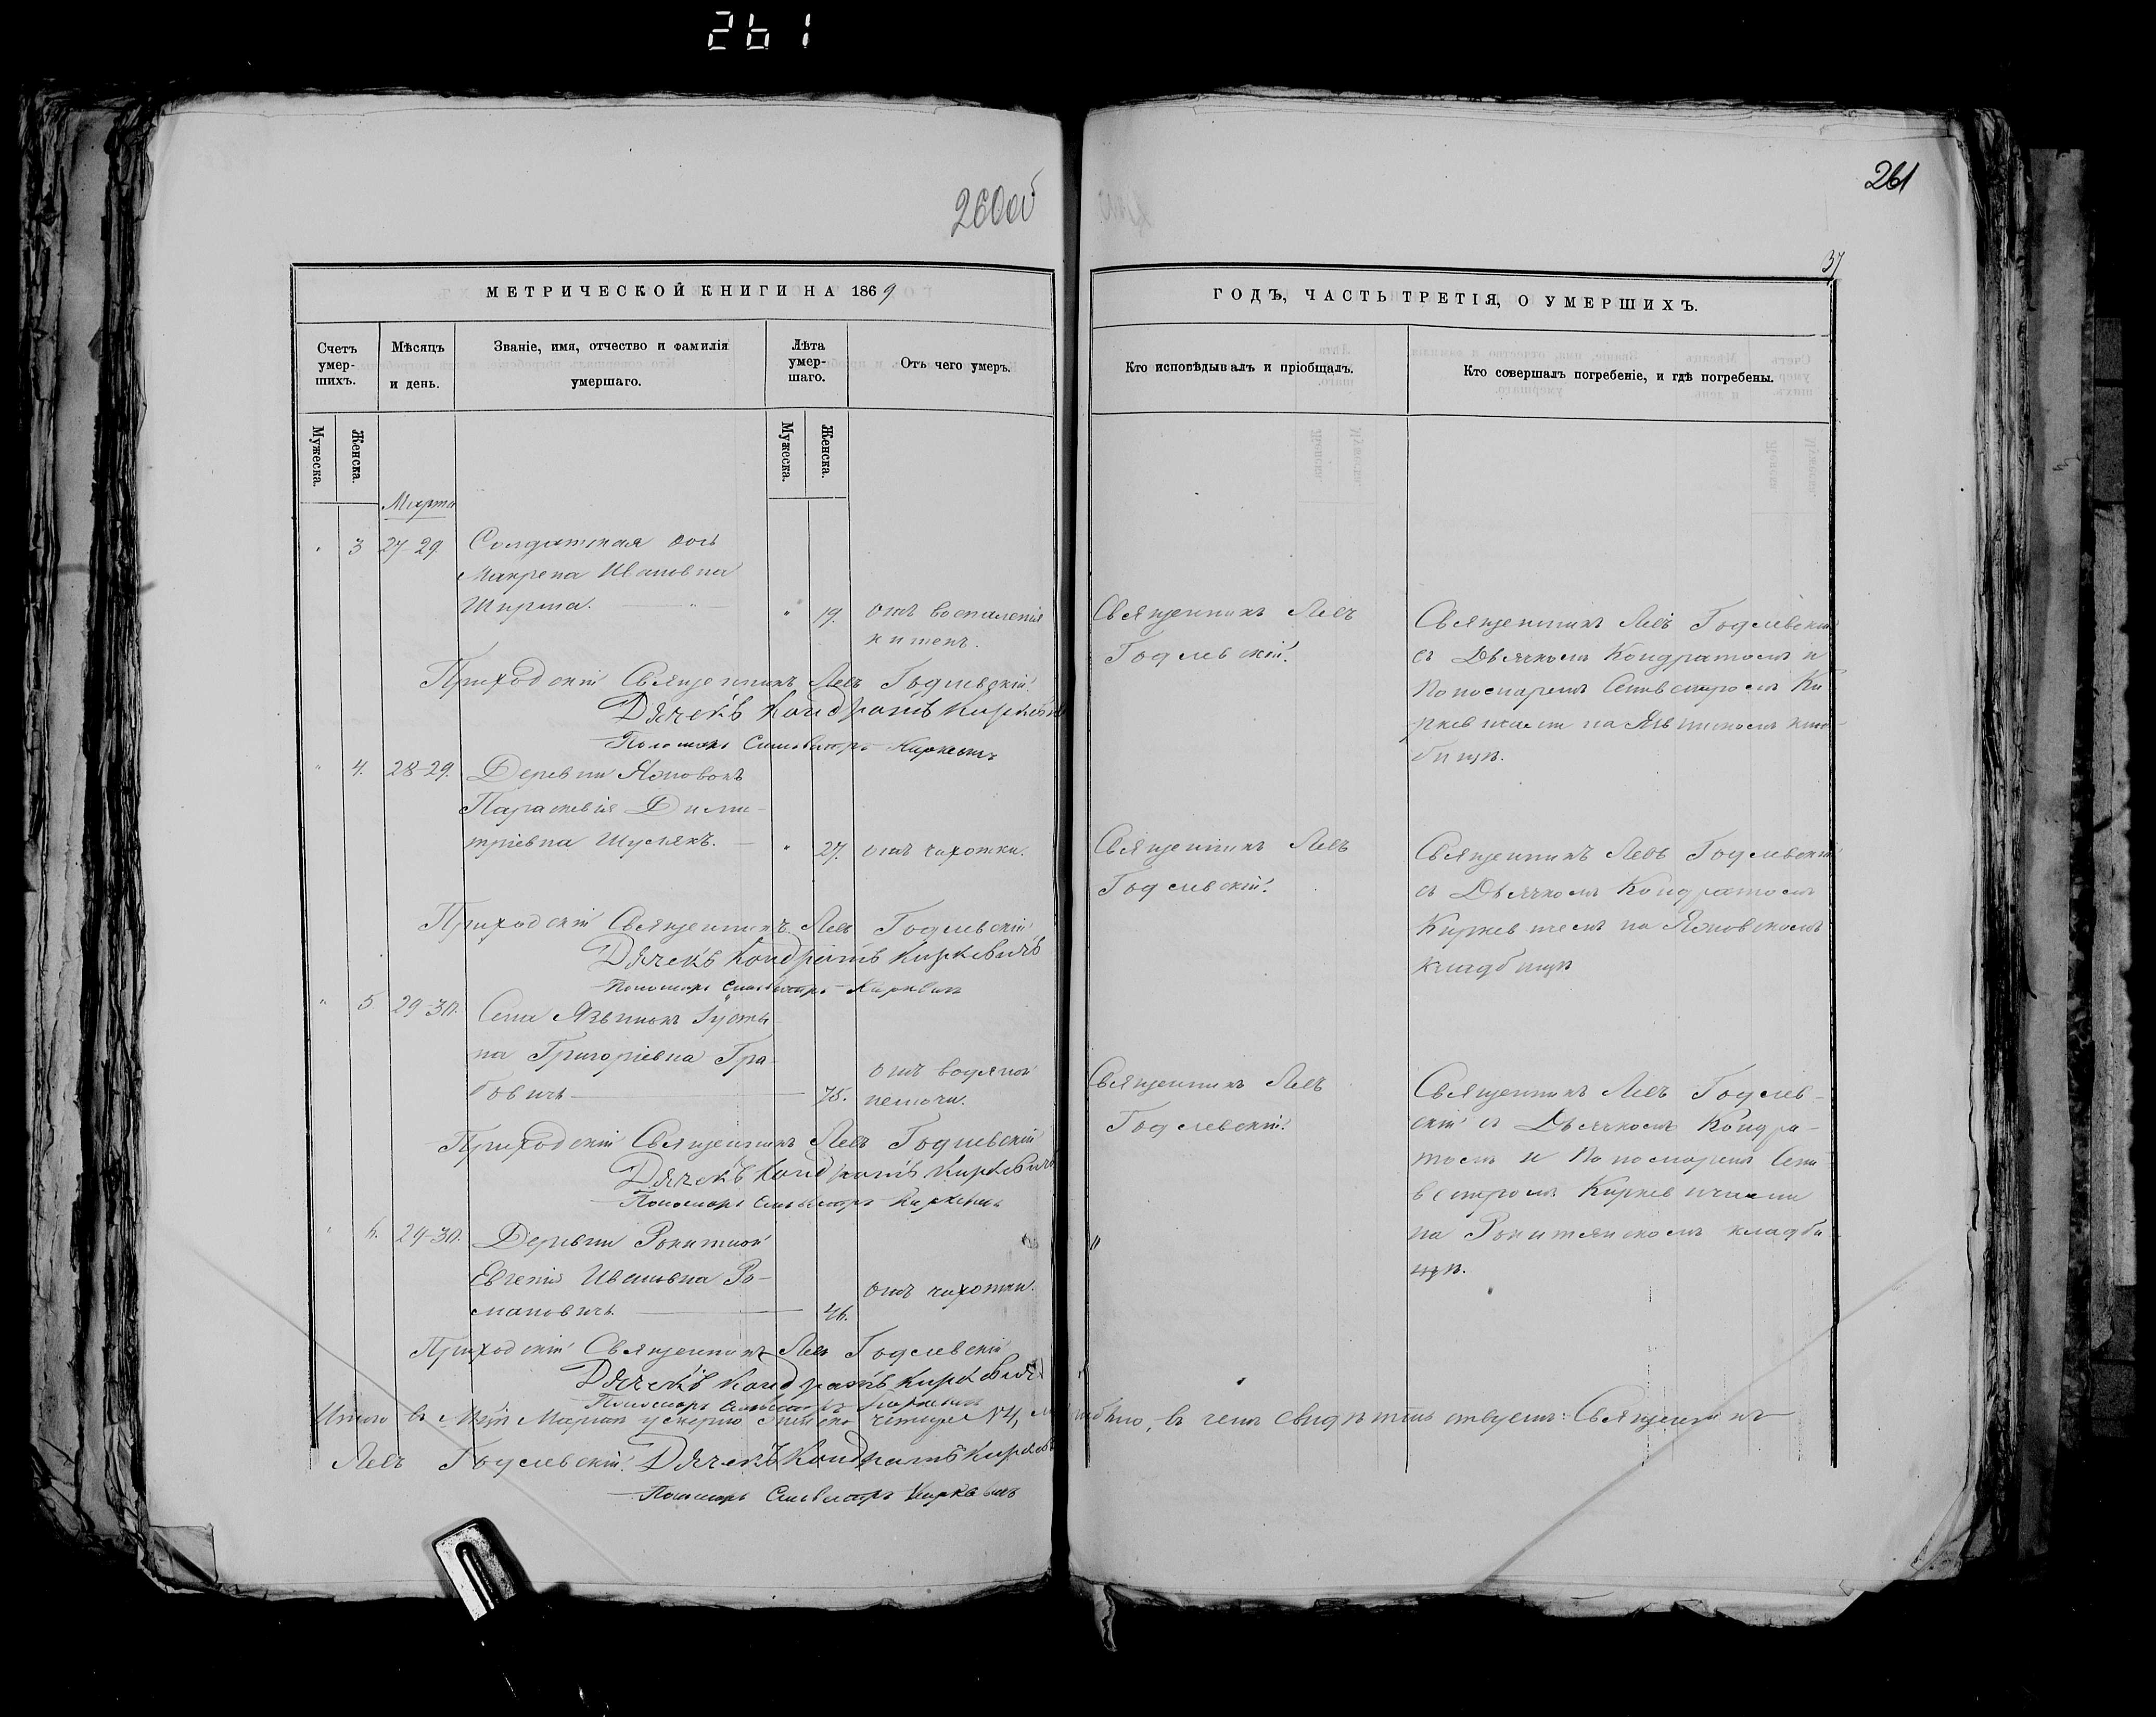 261
260об
261
37
МЕТРИЧЕСКОЙ КНИГИ НА 1869
ГОДЪ, ЧАСТЬ ТРЕТІЯ, О УМЕРШИХЪ.
Счетъ умер-шихъ.
Мѣсяцъ и день.
Званіе, имя, отчество и фамилія умершаго.
Лѣта умер-шаго.
Отъ чего умеръ.
Кто исповѣдывалъ и пріобщалъ.
Кто совершалъ погребеніе, и гдѣ погребены.
Мужеска.
Женска.
Мужеска.
Женска.
Марта
" 3 27-29. Солдатская дочь
Макрена Ивановна
Ширма. " 19. отъ воспаленія
кишекъ.
Священникъ Левъ
Годлевскій.
Священникъ Левъ Годлевскій
съ Дьячкомъ Кондратомъ и
Пономаремъ Сильвестромъ Ки
ркевичами на кла
бищѣ.
Приходскій Священникъ Левъ Годлевскій.
Дячекъ Кондратъ Киркевичъ
Пономарь Сильвестръ Киркевичъ
" 4. 28-29. Деревни Яновокъ
Параскевія Дими-
тріевна Шуслякъ. " 27. отъ чахотки.
Священникъ Левъ
Годлевскій.
Священникъ Левъ Годлевскій
съ Дьячкомъ Кондратомъ
Киркевичемъ на Яновскомъ
кладбищѣ
Приходскій Священникъ Левъ Годлевскій
Дячекъ Кондратъ Киркевичъ
Пономарь Сильвестръ Киркевичъ
" 5 29-30. Села Язвинокъ
на Григоріевна Гра-
бовичъ 75. отъ водяной
немочи.
Священникъ Левъ
Годлевскій.
Священникъ Левъ Годлев-
скій съ Дьячкомъ Кондра-
томъ и Пономаремъ Силь
вестромъ Киркевичами
на Рокитянскомъ кладби
щѣ.
Приходскій Священникъ Левъ Годлевскій
Дячекъ Кондратъ Киркевичъ
Пономарь Сильвестръ Киркевичъ
" 6. 29-30. Деревни Рокитной
Евгенія Ивановна Ро-
мановичъ 46. отъ чахотки.
"
Приходскій Священникъ Левъ Годлевскій
Дячекъ Кондратъ Киркевичъ
Пономарь Сильвестръ Киркевичъ
Итого въ Мартѣ умерло женска четыре №4, въ чемъ свидѣтельствуемъ: Священникъ
Левъ Годлевскій. Дячекъ Кондратъ Киркевичъ
Пономарь Сильвестръ Киркевичъ